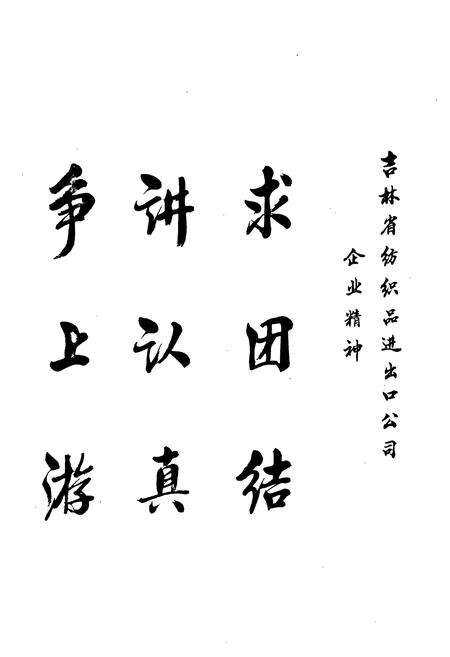 吉林省纺织品进出口公司
企业精神
求团结
讲认真
争上游